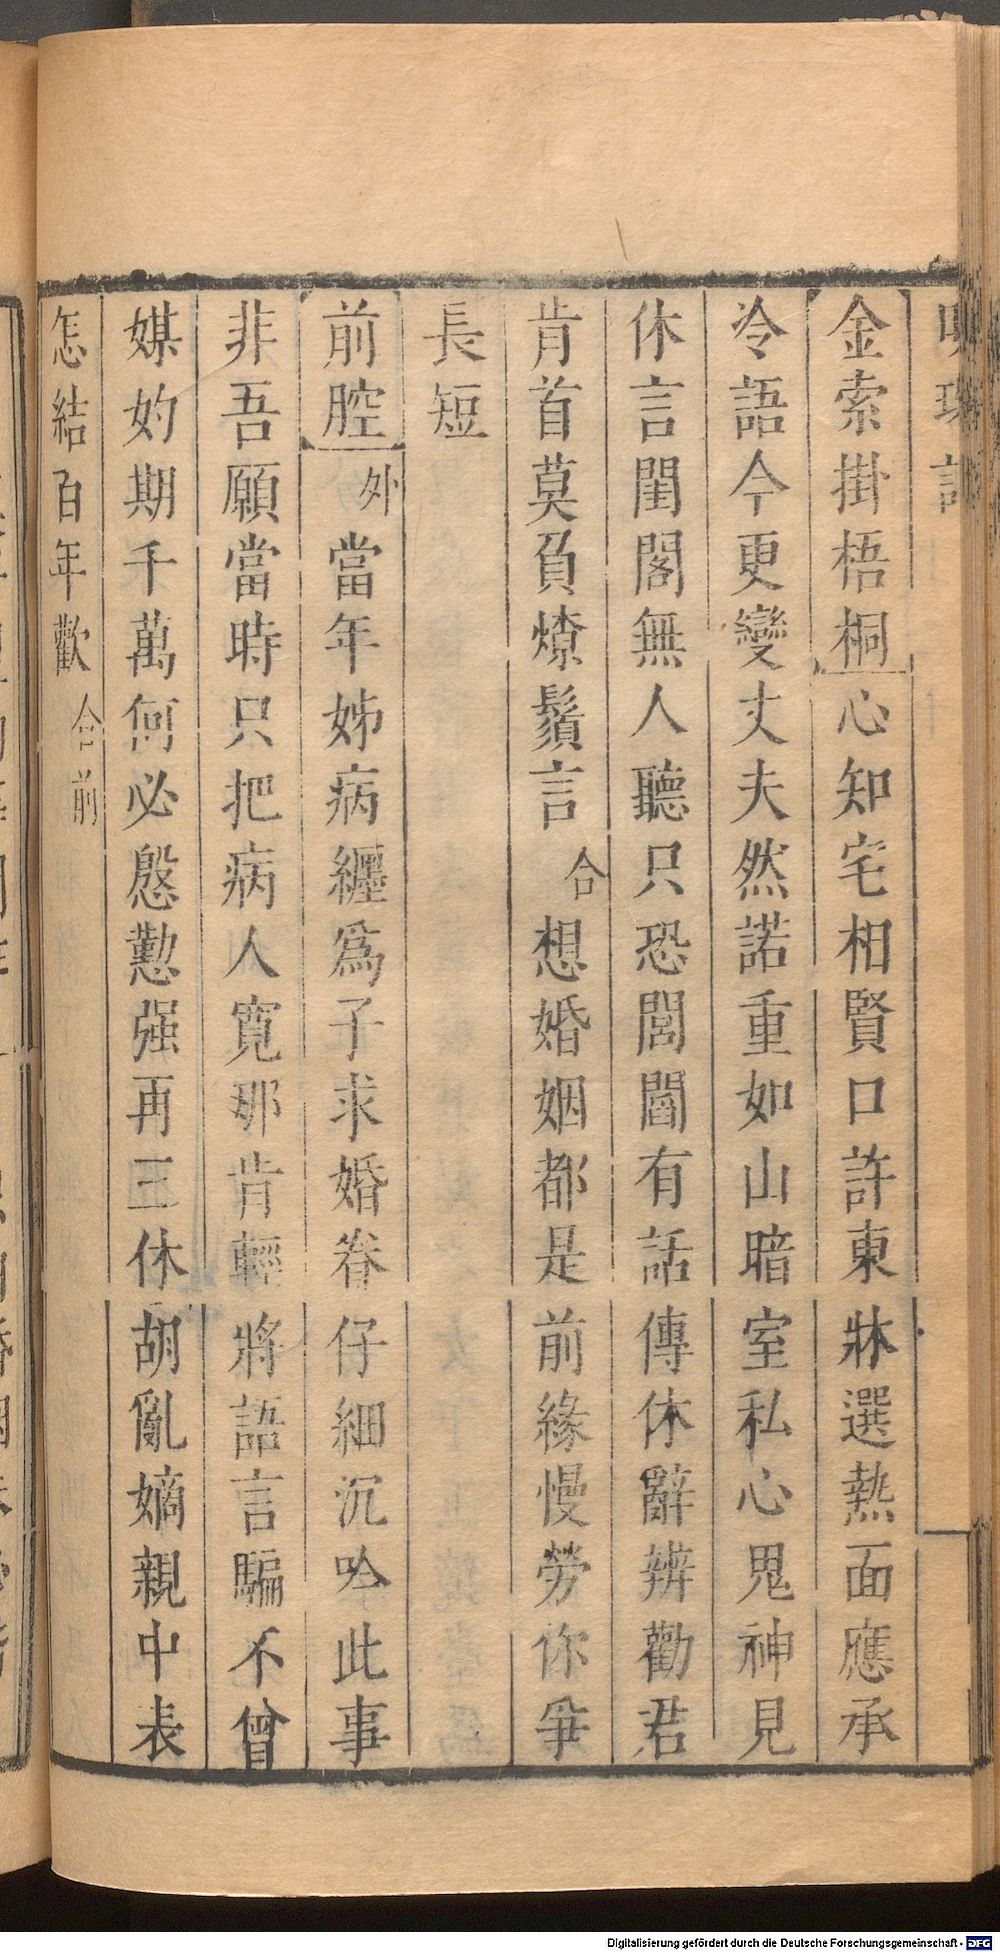 明珠記
金索掛梧桐心知宅相賢口許東牀選熱面應承
冷語今更變丈夫然諾重如山暗室私心鬼神見
休言閨閣無人聽只恐閭閻有話傳休辭辨勸君
肯首莫負燎鬚言合想婚姻都是前緣慢勞你爭
長短
前腔外當年姊病纏爲子求婚眷仔細沉吟此事
非吾願當時只把病人寬那肯輕將語言騙不曾
媒妁期千萬何必慇懃强再三休胡亂嫡親中表
怎結百年歡合前
Digitalisierung gefördert durch die Deutsche Forschungsgemeinschaft - DFG